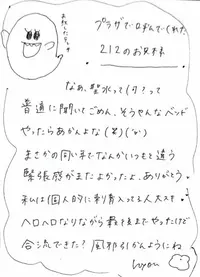 お話したヨ♡
プラザで呼んでくれた
212のお兄様
なぁ、聖水って(?)って
普通に聞いてごめん、そうやんなベッド
やったらあかんよな
まさかの同い年でなんかいつもと違う
緊張感がまたよかったよ、ありがとう。
私は個人的に刺青入ってる人大スキ
ヘロヘロなりながら最後までやったけど
合流できた? 風邪引かんようにね